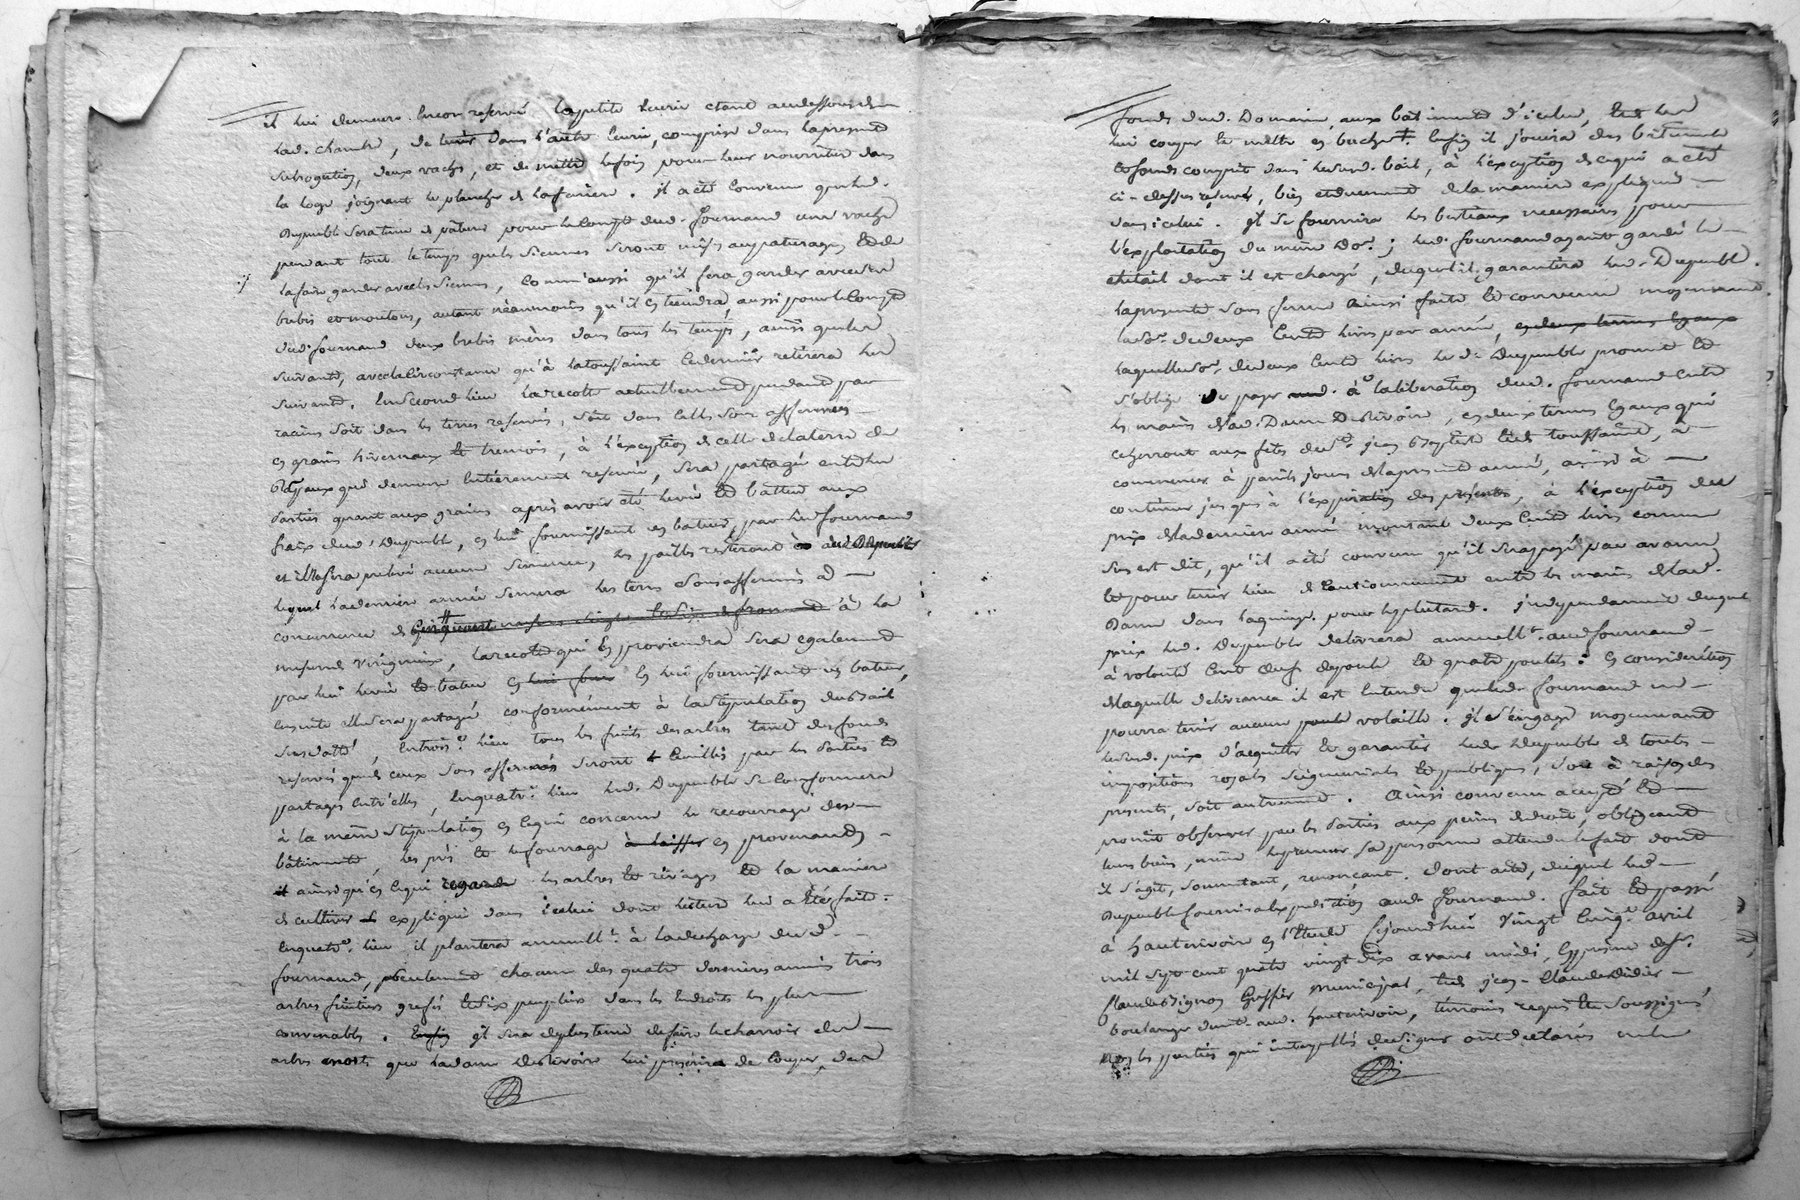 il lui demeure encor reservé la petite écurie étant au dessous de
lad. chambre, de tenir dans l'autre écurie, comprise dans la presente
subrogation, deux vaches, et de mettre le foin pour leur nourriture dans
la loge joignant le plancher de la fenière. il a été convenu que led.
Dupeuble sera tenu de pâturer pour le compte dud. fournand une vache
pendant tout le temps que les siennes seront mises au pâturage, et de
la faire garder avec les siennes, comm'aussi qu'il fera garder avec ses
brebis et moutons, autant néanmoins qu'il en tiendra, aussi pour le compte
dud. fournand deux brebis mères dans tous les temps, ainsi que leur
suivants, avec la circonstance qu'à la toussaint ce dernier retirera leur
suivant. En second lieu la recolte actuellement pendante par
racines soit dans les terres reservées, soit dans celles sous affermées
en grains hivernaux et tremois, à l'exception de celle de la terre de
qui demeure entièrement reservée, sera partagée entre les
parties quant aux grains après avoir été levée et battue aux
fraix dud. Dupeuble, en lui fournissant un bateur, par led. fournand
et il ne sera prélevé aucune semence, les pailles resteront aud. Dupeuble
lequel la derniere année semera les terres sous affermées à
concurrence de à la
mesure, la recolte qui en proviendra sera egalement
par lui levée et batue en lui fournissant un bateur,
ensuite elle sera partagée conformément à la stipulation du bail
susdatté, En trois.e lieu tous les fruits des arbres tant des fonds
reservés que de ceux sous affermés seront cueillis par les parties et
partagés entr'elles, En quatr.e lieu led. Dupeuble se conformera
à la même stipulation en ce qui concerne le recouvrage des
bâtiments, les prés et le fourrage en provenant,
ainsi qu'en ce qui regarde les arbres et rivages et la maniere
de cultiver expliquée dans icelui dont lecture lui a été faite.
En quatr.e lieu il plantera annuell.t à la décharge dud.
fournand, chacune des quatre dernieres années trois
arbres fruitiers greffés et dix peupliers dans les endroits les plus
convenables. il sera de plus tenu de faire le charroir des
arbres morts que la dame Destivoire lui de couper, des
fonds dud. Domaine aux bâtiments d'icelui, et de les
lui couper et mettre en buches. Enfin il jouira des bâtiments
et fonds compris dans led. bail, à l'exception de ce qui a été
ci-dessus reservé, bien et duement de la maniere expliquée
dans icelui. il se fournira les bestiaux necessaires pour
l'exploitation du même Do.e; led. fournand ayant gardé le
chetail dont il est chargé, duquel il garantira led. Dupeuble.
la presente sous ferme ainsi faite et convenue moyennant
la so.e de deux cents livres par année, en deux termes égaux
laquelle so.e de deux cents livres led. Dupeuble promet et
s'oblige de payer à la liberation dud. fournand entre
les mains de lad. Dame Destivoire, en deux termes égaux qui
echerront aux fêtes de St. jean Baptiste et de toussaint, à
commencer à pareils jours de la presente année, ainsi à
continuer jusques à l'expiration des presentes, à l'exception du
prix de la derniere année montant deux cents livres comme
sus est dit, qu'il a été convenu qu'il sera payé par avance
et pour tenir lieu de cautionnement entre les mains de lad.
Dame dans la quinz.e pour le plus tard. independamment duquel
prix led. Dupeuble délivrera annuell.t aud. fournand
à volonté cent œufs de poule et quatre poulets: en consideration
de laquelle delivrance il est entendu que led. fournand ne
pourra tenir aucune volaille. il s'engage moyennant
led. prix d'acquitter et garantir led. Dupeuble de toutes
impositions royales seigneuriales et publiques, soit à raison des
presentes, soit autrement. Ainsi convenu accepté et
promit observer par les parties aux peines de droit, obligeant
leurs biens, même le preneur sa personne attendu le fait dont
il s'agit, soumettant, renonçant. Dont acte, duquel led.
Dupeuble fournira expedition aud. fournand. fait et passé
à hauterivoire en l'étude cejourd'hui vingt cinq.e avril
mil sept cent quatre vingt dix avant midi, en presence de s.r
Claude Bignon Greffier municipal, et de jean-Claude Didier
boulanger dem.t aud. hauterivoire, témoins requis et soussignés,
non les parties qui interpellées de signer ont déclaré ne le